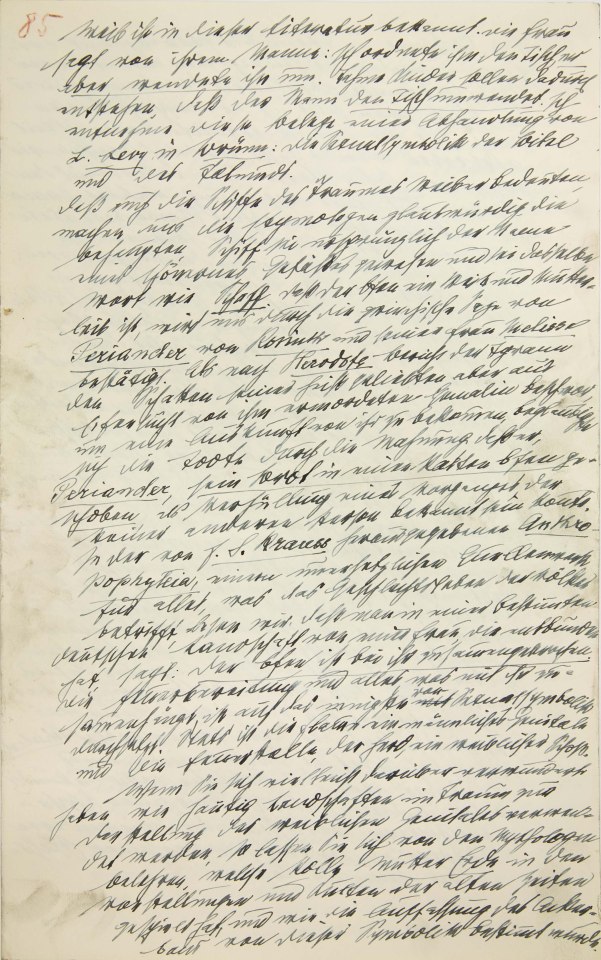 85
Weib ist in dieser Literatur bekannt. Die Frau
sagt von ihrem Manne: Ich ordnete ihm den Tisch an, er
aber wendete ihn um. Lahme Kinder sollen dadurch
entstehen, daß der Mann den Tisch umwendet. Ich
entnehme diese Belege einer Abhandlung von
L. Levy in Brünn: Die Sexualsymbolik der Bibel
und des Talmuds.
Daß auch die Schiffe des Traumes Weiber bedeuten,
machen uns die Etymologen glaubwürdig, die
behaupten, Schiff sei ursprünglich der Name
eines tönernes Gefäßes gewesen und sei dasselbe
Wort wie Schaff. Daß der Ofen ein Weib und Mutter-
leib ist, wird uns durch die griechische Sage von
Periander von Korinth und seiner Frau Melissa
bestätigt. Als nach Herodots Bericht der Tyrann
den Schatten seiner heißgeliebten aber aus
Eifersucht von ihm ermordeten Gemalin beschwor,
um eine Auskunft von ihr zu bekommen, beglaubigte
sich die Todte durch die Mahnung, daß er,
Periander, sein Brot in einen kalten Ofen ge-
schoben, als Verhüllung eines Vorganges der
keiner anderen Person bekannt sein konnte.
In der von F. S. Krauss herausgegebenen Anthro-
pophyteia, einem unersetzlichen Quellenwerk
für alles, was das Geschlechtsleben der Völker
betrifft, lesen wir, daß man in einer bestimmten
deutschen Landschaft von einer Frau, die entbunden
hat, sagt: Der Ofen ist bei ihr zusammengebrochen.
Die Feuerbereitung und alles was mit ihr zu-
sammenhängt, ist auf das innigste von Sexualsymbolik
durchsetzt. Stets ist die Flamme ein männliches Genitale
und die Feuerstelle, der Herd, ein weiblicher Schoß.
Wenn Sie sich vielleicht darüber verwundert
haben, wie häufig Landschaften im Traum zur
Darstellung des weiblichen Genitales verwen-
det werden, so lassen Sie sich von den Mythologen
belehren, welche Rolle Mutter Erde in den
Vorstellungen und Kulten der alten Zeiten
gespielt hat und wie die Auffassung des Acker-
baus von dieser Symbolik bestimmt wurde.